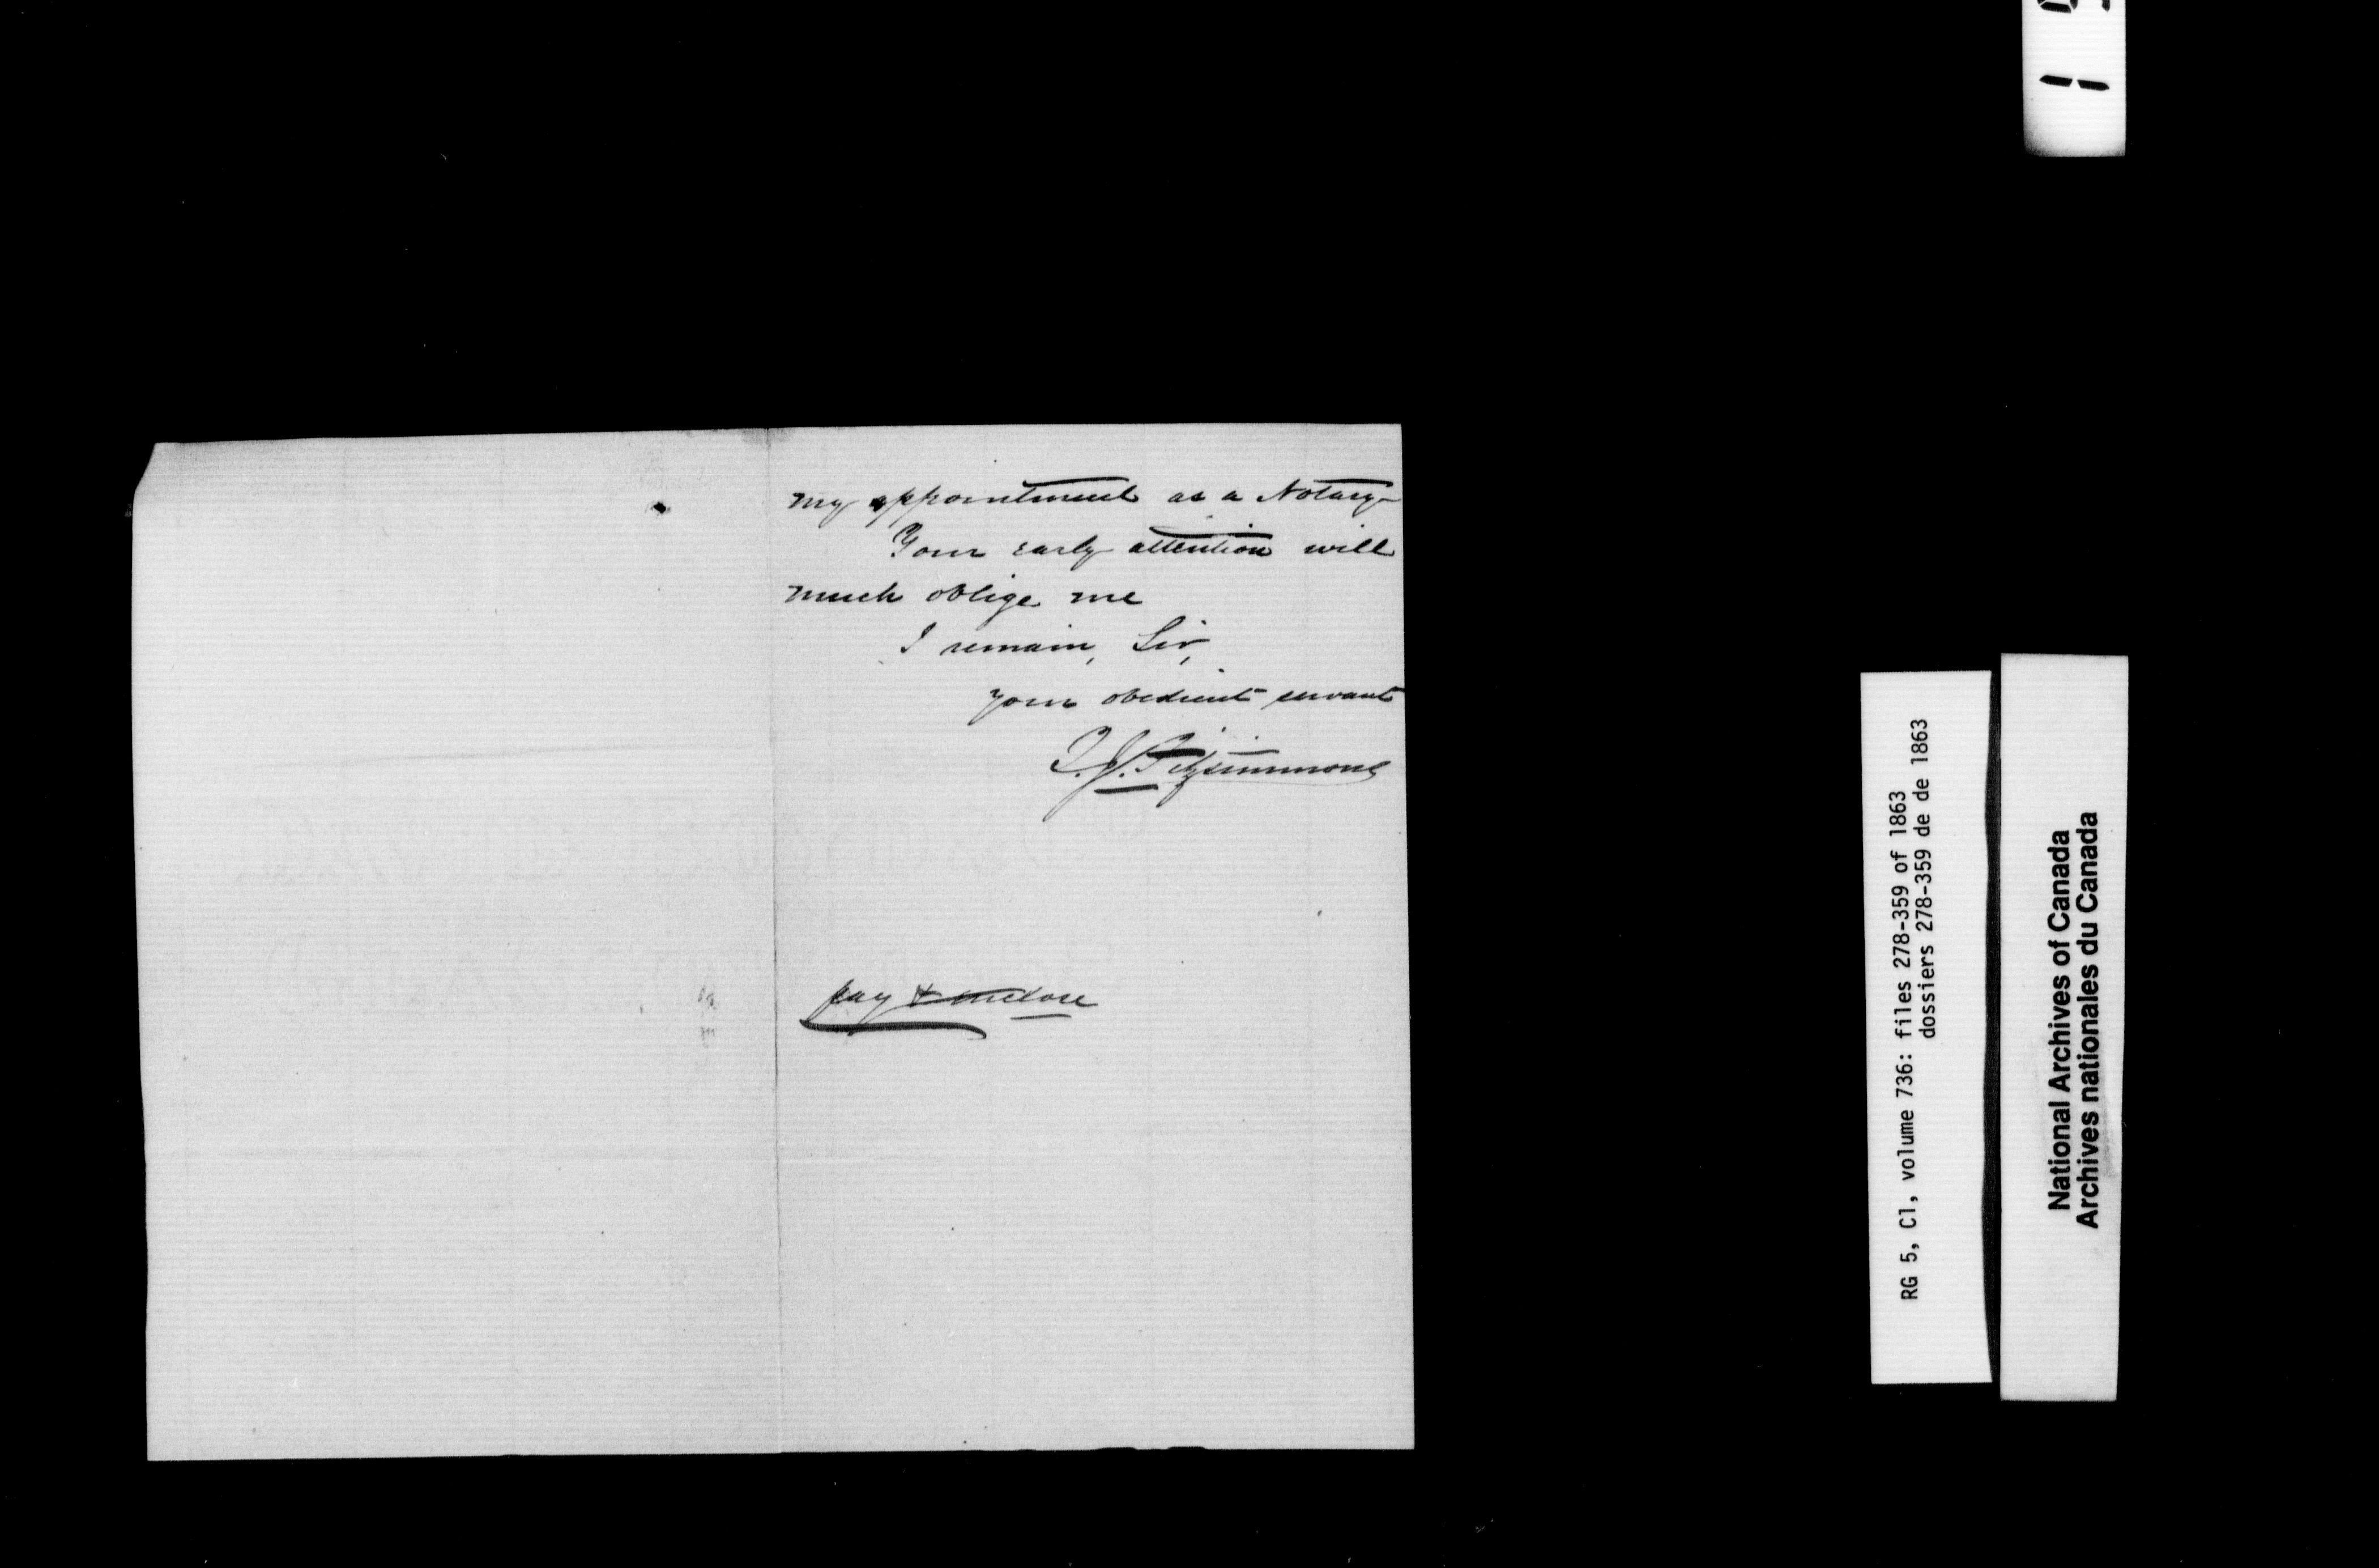 my appointment as a Notary
Your early attention will
much oblige me
I remain, Sir,
your obedient servant
T. J. Fitzsimmons
pay & enclose
RG 5, C1, volume 736: files 278-359 of 1863
dossiers 278-359 de de 1863
National Archives of Canada
Archives nationales du Canada